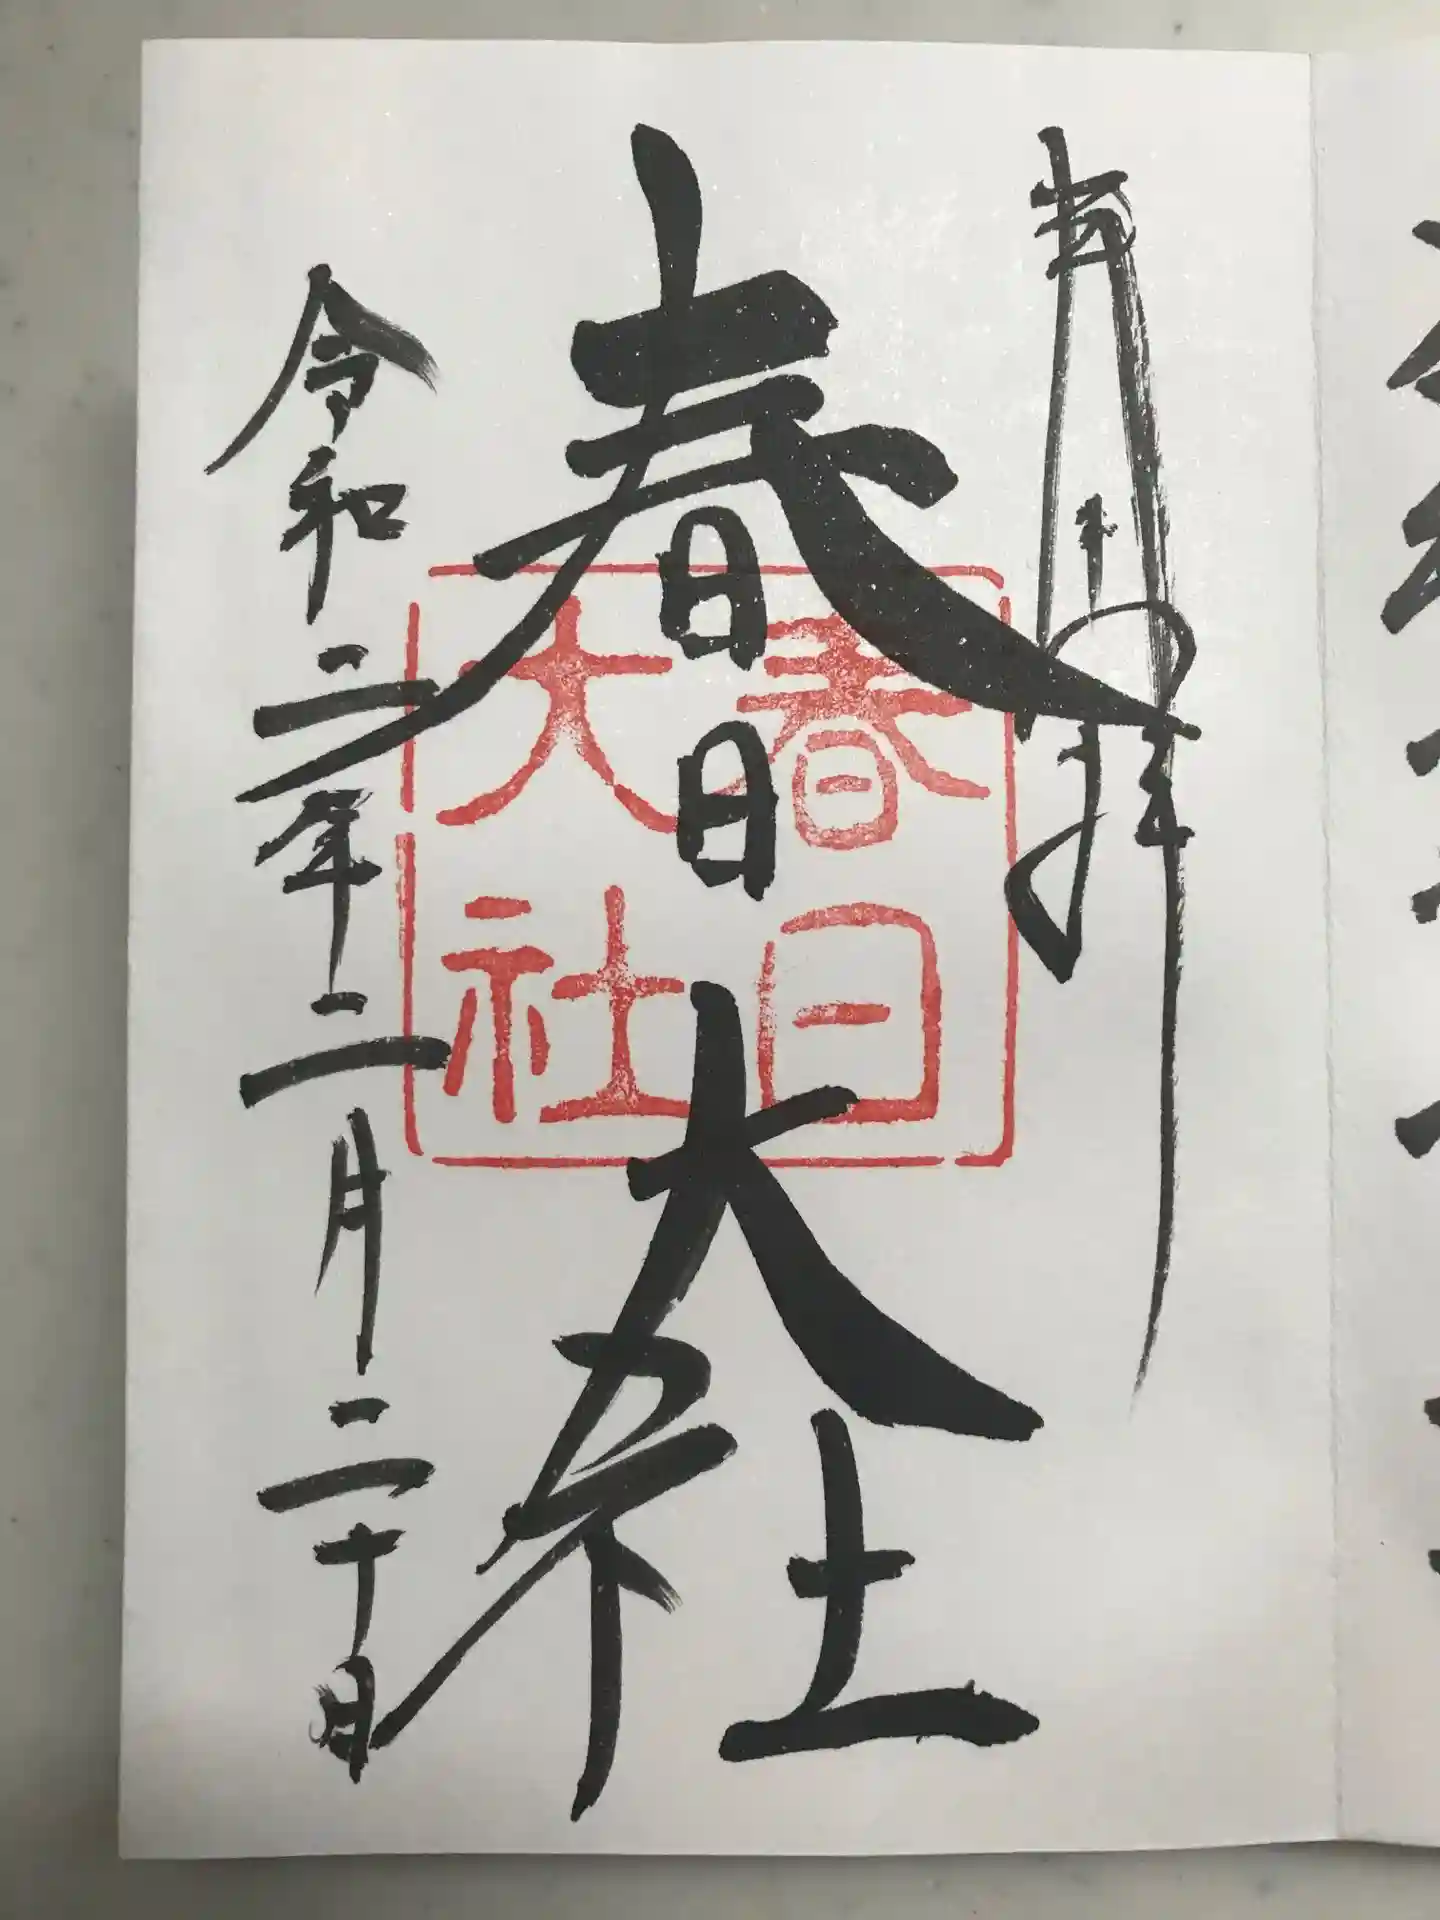 奉拝
春日大社
春日
大社
令和二年二月二十日